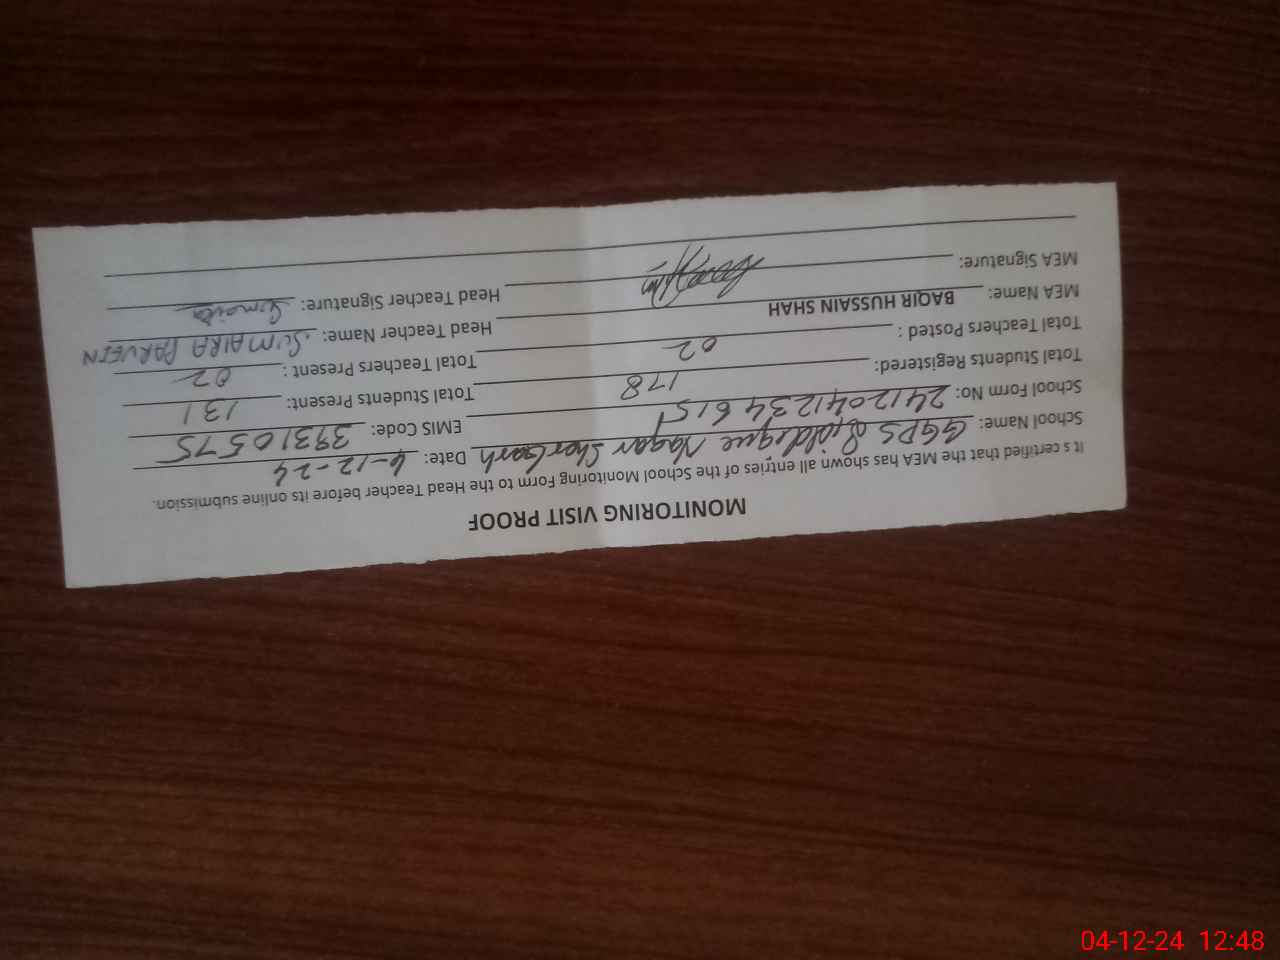 MONITORING VISIT PROOF
It s certified that the MEA has shown all entries of the School Monitoring Form to the Head Teacher before its online submission.
School Name: GGPS Siddique Nagar Shorkash Date: 4-12-24
School Form No: 2412041234615 EMIS Code: 39310575
Total Students Registered: 178 Total Students Present: 131
Total Teachers Posted : 02 Total Teachers Present : 02
MEA Name: BAQIR HUSSAIN SHAH Head Teacher Name: SUMAIRA PARVEEN
MEA Signature: Head Teacher Signature: Sumaira
04-12-24 12:48